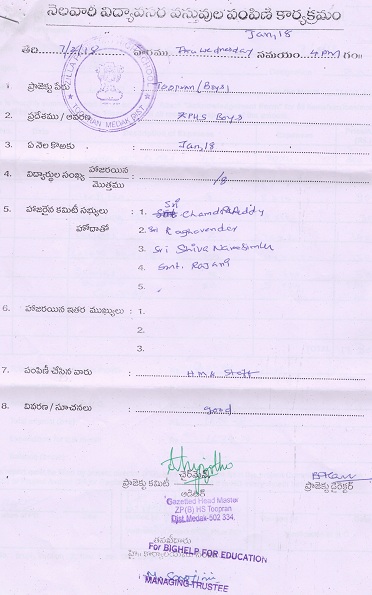 నెలవారి విద్యావసర వస్తువుల పంపిణి కార్యక్రమం
Jan,18
తేది 7/2/18 వారము wednesday సమయం 4 PM గం॥
1 ప్రాజెక్టు పేరు : Toopran (Boys)
2. ప్రదేశము / ఆవరణ : ZPHS Boys
3. ఏ నెల కొఱకు : Jan,18
4. విద్యార్థుల సంఖ్య హాజరయిన : 18
మొత్తము
5. హాజరైన కమిటీ సభ్యులు : 1. Sri
హోదాతో 2. Sri Raghavender
3. Sri Shiva
4. Smt. Rajani
5.
6. హాజరయిన ఇతర ముఖ్యులు : 1.
2.
3.
7. పంపిణీ చేసిన వారు : H.M & Staff
8. వివరణ / సూచనలు : good
చైర్మన్
ప్రాజెక్టు కమిటి ప్రాజెక్టు డైరెక్టర్
Gazetted Head Master
ZP(B) HS Toopran
Dist.Medak-502 334.
For BIGHELP FOR EDUCATION
MANAGING TRUSTEE
TOOPRAN MEDAK DIST